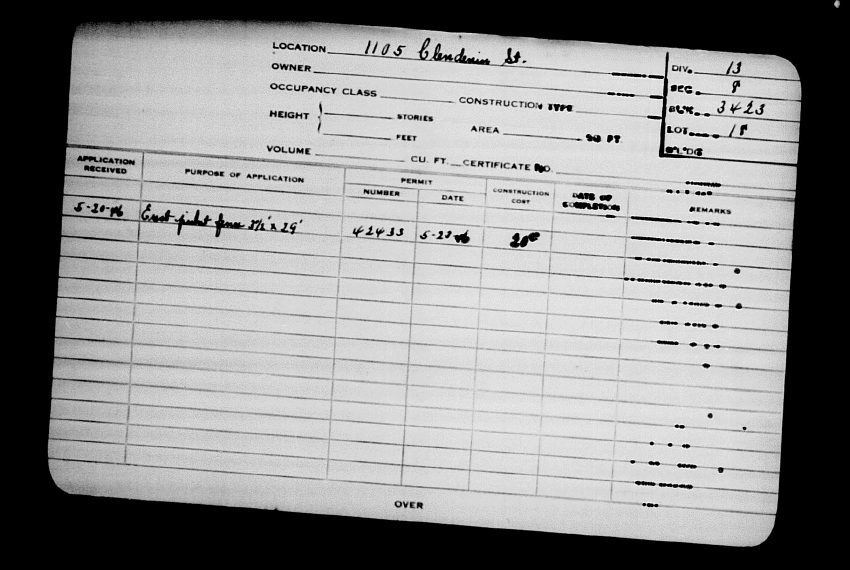 LOCATION 1105 Clendenin St.
DIV. 13
OWNER
SEC. 8
OCCUPANCY CLASS CONSTRUCTION TYPE
BLK. 3423
HEIGHT STORIES
FEET
AREA SQ FT.
LOT 18
BLDG
VOLUME CU. FT. CERTIFICATE NO.
APPLICATION RECEIVED PURPOSE OF APPLICATION PERMIT NUMBER DATE CONSTRUCTION COST DATE OF COMPLETION REMARKS
5-20-46 Erect picket fence 3½' x 29' 42433 5-23 46 20⁰⁰
OVER